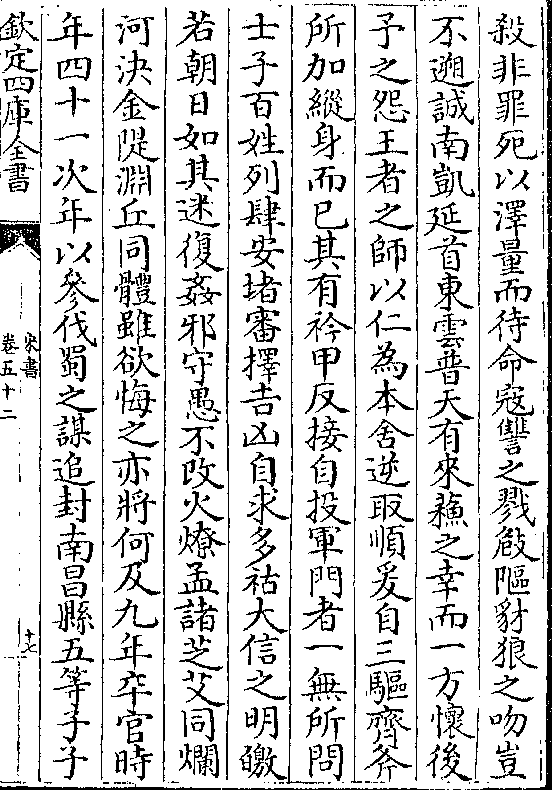 殺非罪死以澤量而待命寇讐之戮㪟陿豺狼之吻豈
不遡誠南凱延首東雲普天有來蘓之幸而一方懷後
予之怨王者之師以仁為本舍逆取順爰自三驅齊斧
所加縱身而已其有衿甲反接自投軍門者一無所問
士子百姓列肆安堵審擇吉凶自求多祜大信之明皦
若朝日如其迷復姦邪守愚不改火燎孟諸芝艾同爛
河決金隄淵丘同體雖欲悔之亦將何及九年卒官時
年四十一次年以參伐蜀之謀追封南昌縣五等子子
欽定四庫全書
宋書
卷五十二
十七